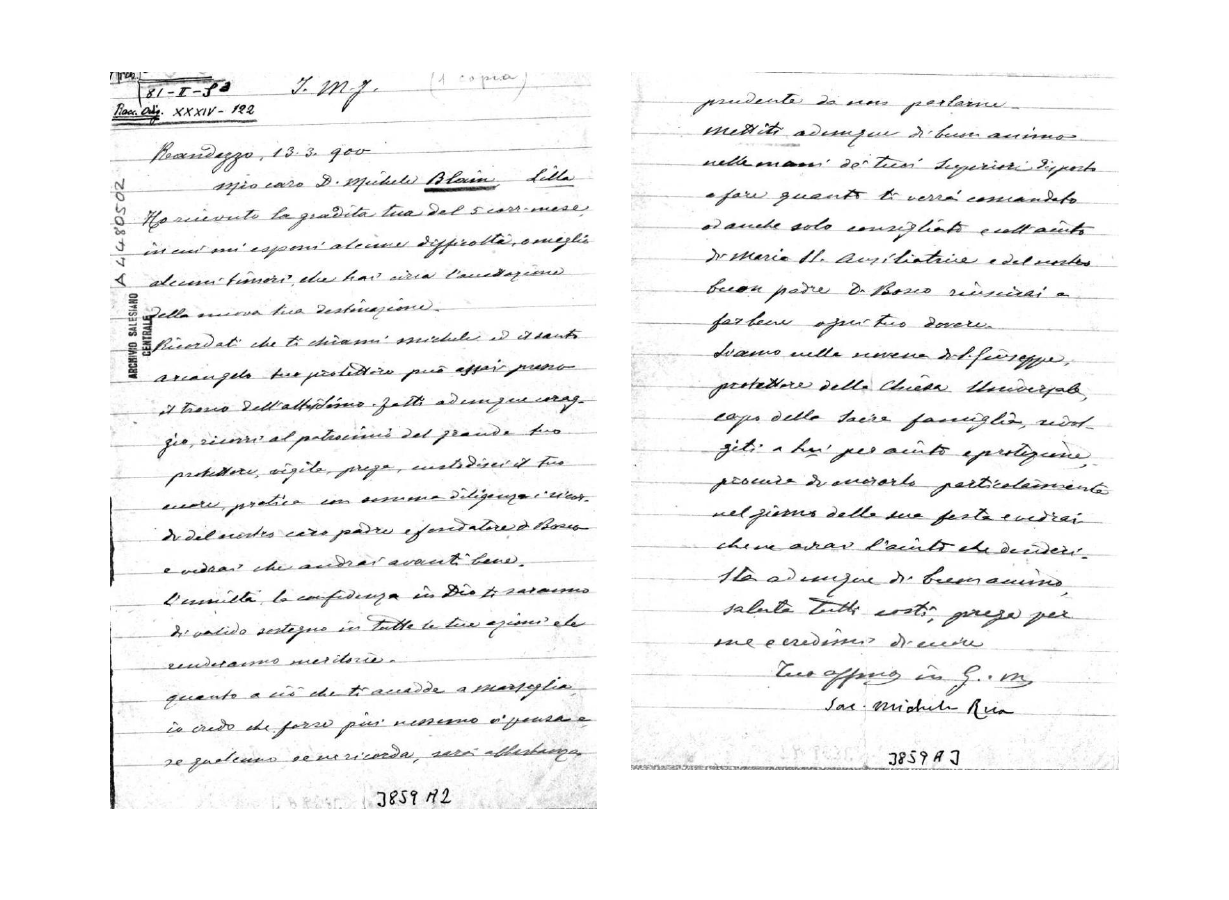 81-I-
J. M. J.
(1 copia)
Racc. Orig. XXXIV - 122
A 4480502
ARCHIVIO SALESIANO
CENTRALE
Randazzo, 13.3.900
Mio caro D. Michele Blain Lilla
Ho ricevuto la gradita tua del 5 corr. mese,
in cui mi esponi alcune difficoltà, o meglio
alcuni timori, che hai circa l'accettazione
della nuova tua destinazione.
Ricordati che ti chiami Michele ed il santo
arcangelo tuo protettore può assai presso
il trono dell'altissimo. Fatti adunque corag-
gio, ricorri al patrocinio del grande tuo
protettore, vigila, prega, custodisci il tuo
cuore, pratica con somma diligenza i ricor-
di del nostro caro padre e fondatore D. Bosco
e vedrai che andrai avanti bene.
L'umiltà, la confidenza in Dio ti saranno
di valido sostegno in tutte le tue azioni e le
renderanno meritorie.
quanto a ciò che ti accadde a Marsiglia,
io credo che forse più nessuno vi pensa e
se qualcuno se ne ricorda, sarà abbastanza
J859 A2
prudente da non parlarne.
Mettiti adunque di buon animo
nelle mani de' tuoi Superiori disposto
a fare quanto ti verrà comandato
od anche solo consigliato e coll'aiuto
di Maria SS. Ausiliatrice e del nostro
buon padre D. Bosco riuscirai a
far bene ogni tuo dovere.
Siamo nella novena di S. Giuseppe,
protettore della Chiesa Universale,
capo della Sacra famiglia, rivol-
giti a lui per aiuto e protezione,
procura di onorarlo particolarmente
nel giorno della sua festa e vedrai
che ne avrai l'aiuto che desideri.
Sta adunque di buon animo,
saluta tutti costì, prega per
me e credimi di cuore
Tuo affmo in G. e M.
Sac. Michele Rua
J859 A3